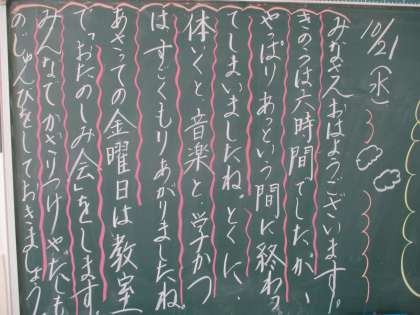 10/21(水)
みなさんおはようございます。
きのうは六時間でしたが、
やっぱりあっという間に終わっ
てしまいましたね。とくに、
体いくと音楽と学かつ
はすごくもりあがりましたね。
あさっての金曜日は教室
で「おたのしみ会」をします。
みんなでかざりつけやだしも
のじゅんびをしておきましょう。